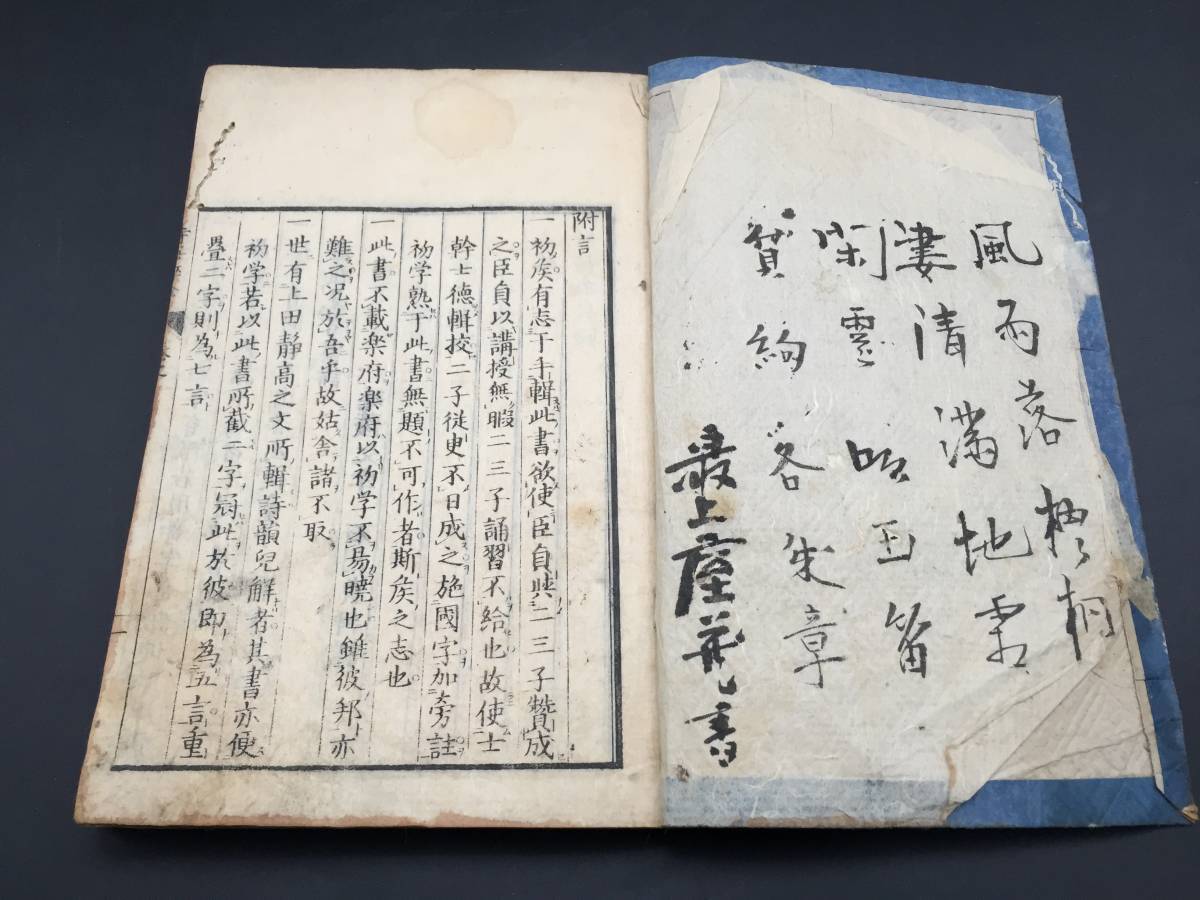 風雨落梧桐
凄清満地霜
閑雲
玉笛
賛
客朱章
最上
書
附言
一初矦有志于手輯此書欲使臣貟與二三子贊成
之臣貟以講授無暇二三子誦習不給也故使士
幹士德輯挍二子従叓不日成之施國字加旁註
初学熟于此書無題不可作者斯矦之志也
一此書不載楽府楽府以初学不易暁也雖彼邦亦
難之况放吾乎故姑舎諸不取
一世有上田静高之文所輯詩韻兒解者其書亦便
初学若以此書所截二字冠此於彼即為五言重
疊二字則為七言